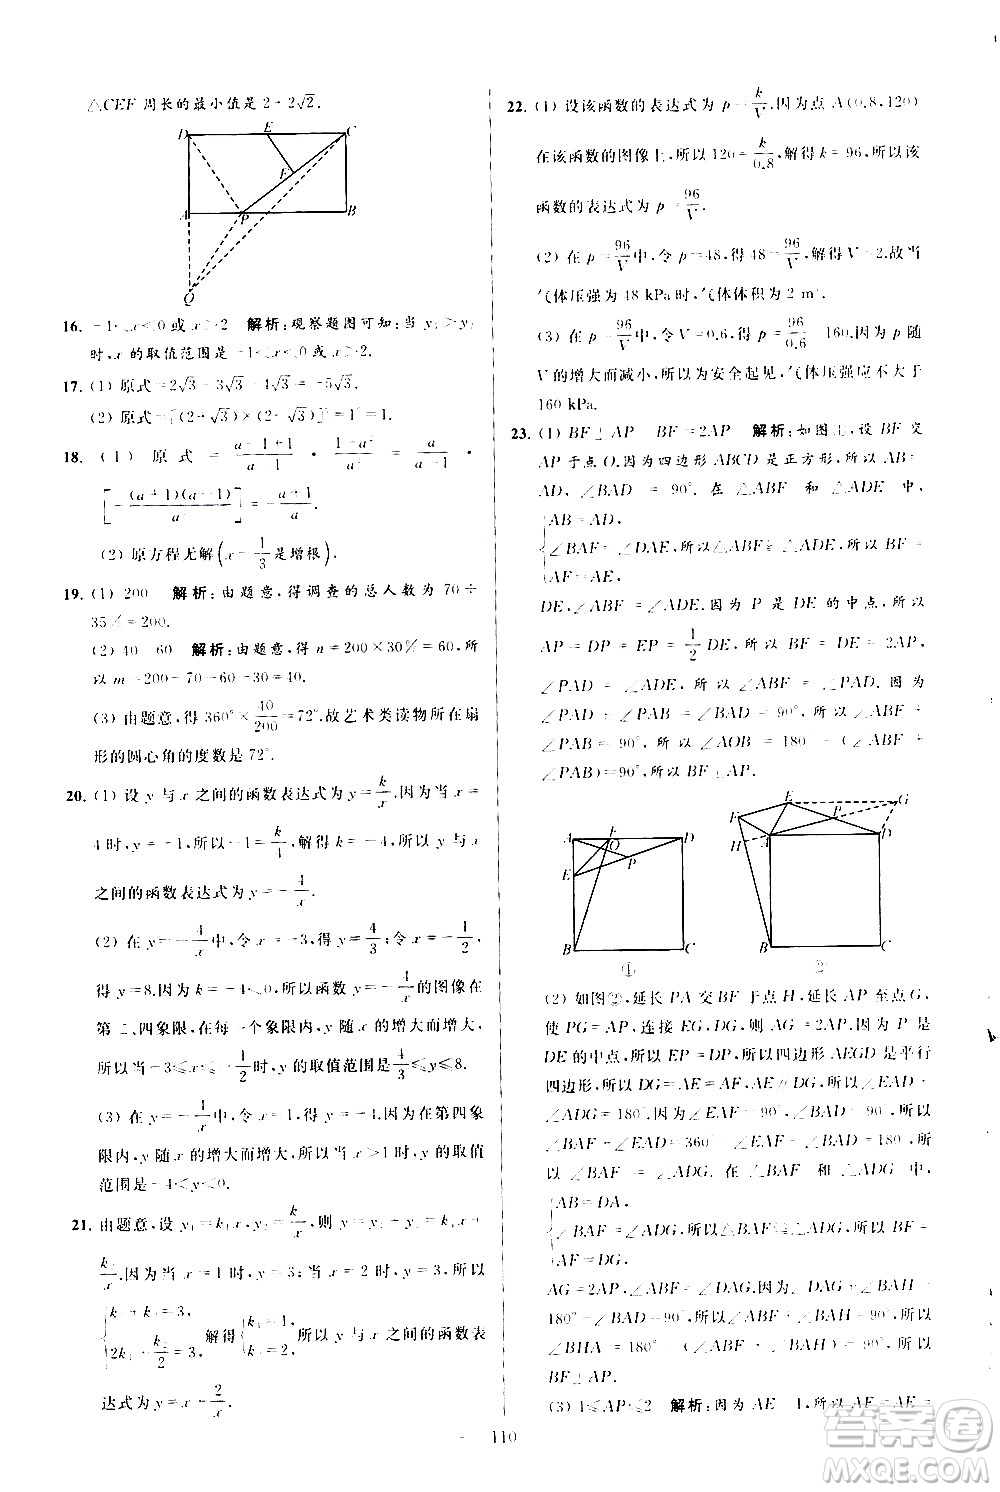 △CEF 周长的最小值是 2+2√2.
D E C
F
A P B
Q
16. -1<x<0 或 x>2 解析:观察题图可知:当 y₁>y₂
时,x 的取值范围是 -1<x<0 或 x>2.
17. (1) 原式=2√3-3√3-4√3=-5√3.
18. (1) 原式 =
(2) 原方程无解(x=1/3是增根).
19. (1) 200 解析:由题意,得调查的总人数为 70÷
35%=200.
(2) 40 60 解析:由题意,得 n=200×30%=60,所
以 m=200-70-60-30=40.
(3) 由题意,得 360°×40/200=72°.故艺术类读物所在扇
形的圆心角的度数是 72°.
20. (1) 设 y 与 x 之间的函数表达式为 y=k/x.因为当 x=
4 时,y=-1,所以 -1=k/4.解得 k=-4,所以 y 与 x
之间的函数表达式为 y=-4/x.
(2) 在 y=-4/x中,令 x=-3,得 y=4/3;令 x=-1/2,
得 y=8.因为 -4<0,所以 y=-4/x的图像在
第二、四象限,在每一个象限内,y 随 x 的增大而增大,
时,y 的取值范围是 4/3≤y≤8.
(3) 在 y=-4/x中,令 x=1,得 y=-4.在第四象
限内,y 随 x 的增大而增大,所以当 x>1 时,y 的取值
范围是 -4<y<0.
21. 由题意,设 y₁=k₁x,y₂=k₂/x,则 y=k₁x+
k₂/x.因为当 x=1 时,y=3,当 x=2 时,y=3,所以
{k₁+k₂=3, 2k₁+k₂/2=3, 解得{k₁=1, k₂=2, 所以 y 与 x 之间的函数表
达式为 y=x+2/x.
22. (1) 设该函数的表达式为 p=k/V.因为点 A(0.8,120)
在该函数的图像上,所以 120=k/0.8,解得 k=96,所以该
函数的表达式为 p=96/V.
(2) 在 p=96/V中,令 p=48,得 48=96/V,所以 V=2.故当
气体压强为 48 kPa 时,气体体积为 2 m³.
(3) 在 p=96/V中,令 V=0.6,得 p=96/0.6=160.因为 p 随
V 的增大而减小,所以为安全起见,气体压强应不大于
160 kPa.
23. (1) BF⊥AP BF=2AP 解析:如图①,设 BF 交
AP 于点 O.因为四边形 ABCD 是正方形,所以 AB=
AD,∠BAD=90°.在 △ABF 和 △ADE 中,
{AB=AD,
∠BAF=∠DAE,所以△ABF≌△ADE,所以 BF=
AF=AE,
DE,∠ABF=∠ADE.因为 P 是 DE 的中点,所以
AP=DP=EP=1/2DE,所以 BF=2AP,
∠PAD=∠ADE,所以∠ABF=∠PAD.因为
∠PAD+∠PAB=∠BAD=90°,所以∠ABF+
∠PAB=90°,所以∠AOB=180°-(∠ABF+
∠PAB)=90°,所以 BF⊥AP.
A F D
O
E P
B C
①
E G
F P
H A D
B C
②
(2) 如图②,延长 PA 交 BF 于点 H,延长 AP 至点 G,
使 PG=AP,连接 EG、DG,则 AG=2AP.因为 P 是
DE 的中点,所以 EP=DP,所以四边形 AEGD 是平行
四边形,所以 DG=AE=AF,AE∥DG,所以∠EAD+
∠ADG=180°.因为∠EAF=90°,∠BAD=90°,所以
∠BAF+∠EAD=360°-∠EAF-∠BAD=180°,所
以∠BAF=∠ADG.在 △BAF 和 △ADG 中,
{AB=DA,
∠BAF=∠ADG,所以△BAF≌△ADG,所以 BF=
AF=DG,
AG=2AP,∠ABF=∠DAG.因为∠DAG+∠BAH=
180°-∠BAD=90°,所以∠ABF+∠BAH=90°,所以
∠BHA=180°-(∠ABF+∠BAH)=90°,所以
BF⊥AP.
(3) 1≤AP≤2 解析:因为 AE=1,所以 AF=AE=
110
答案圈
MXQE.COM